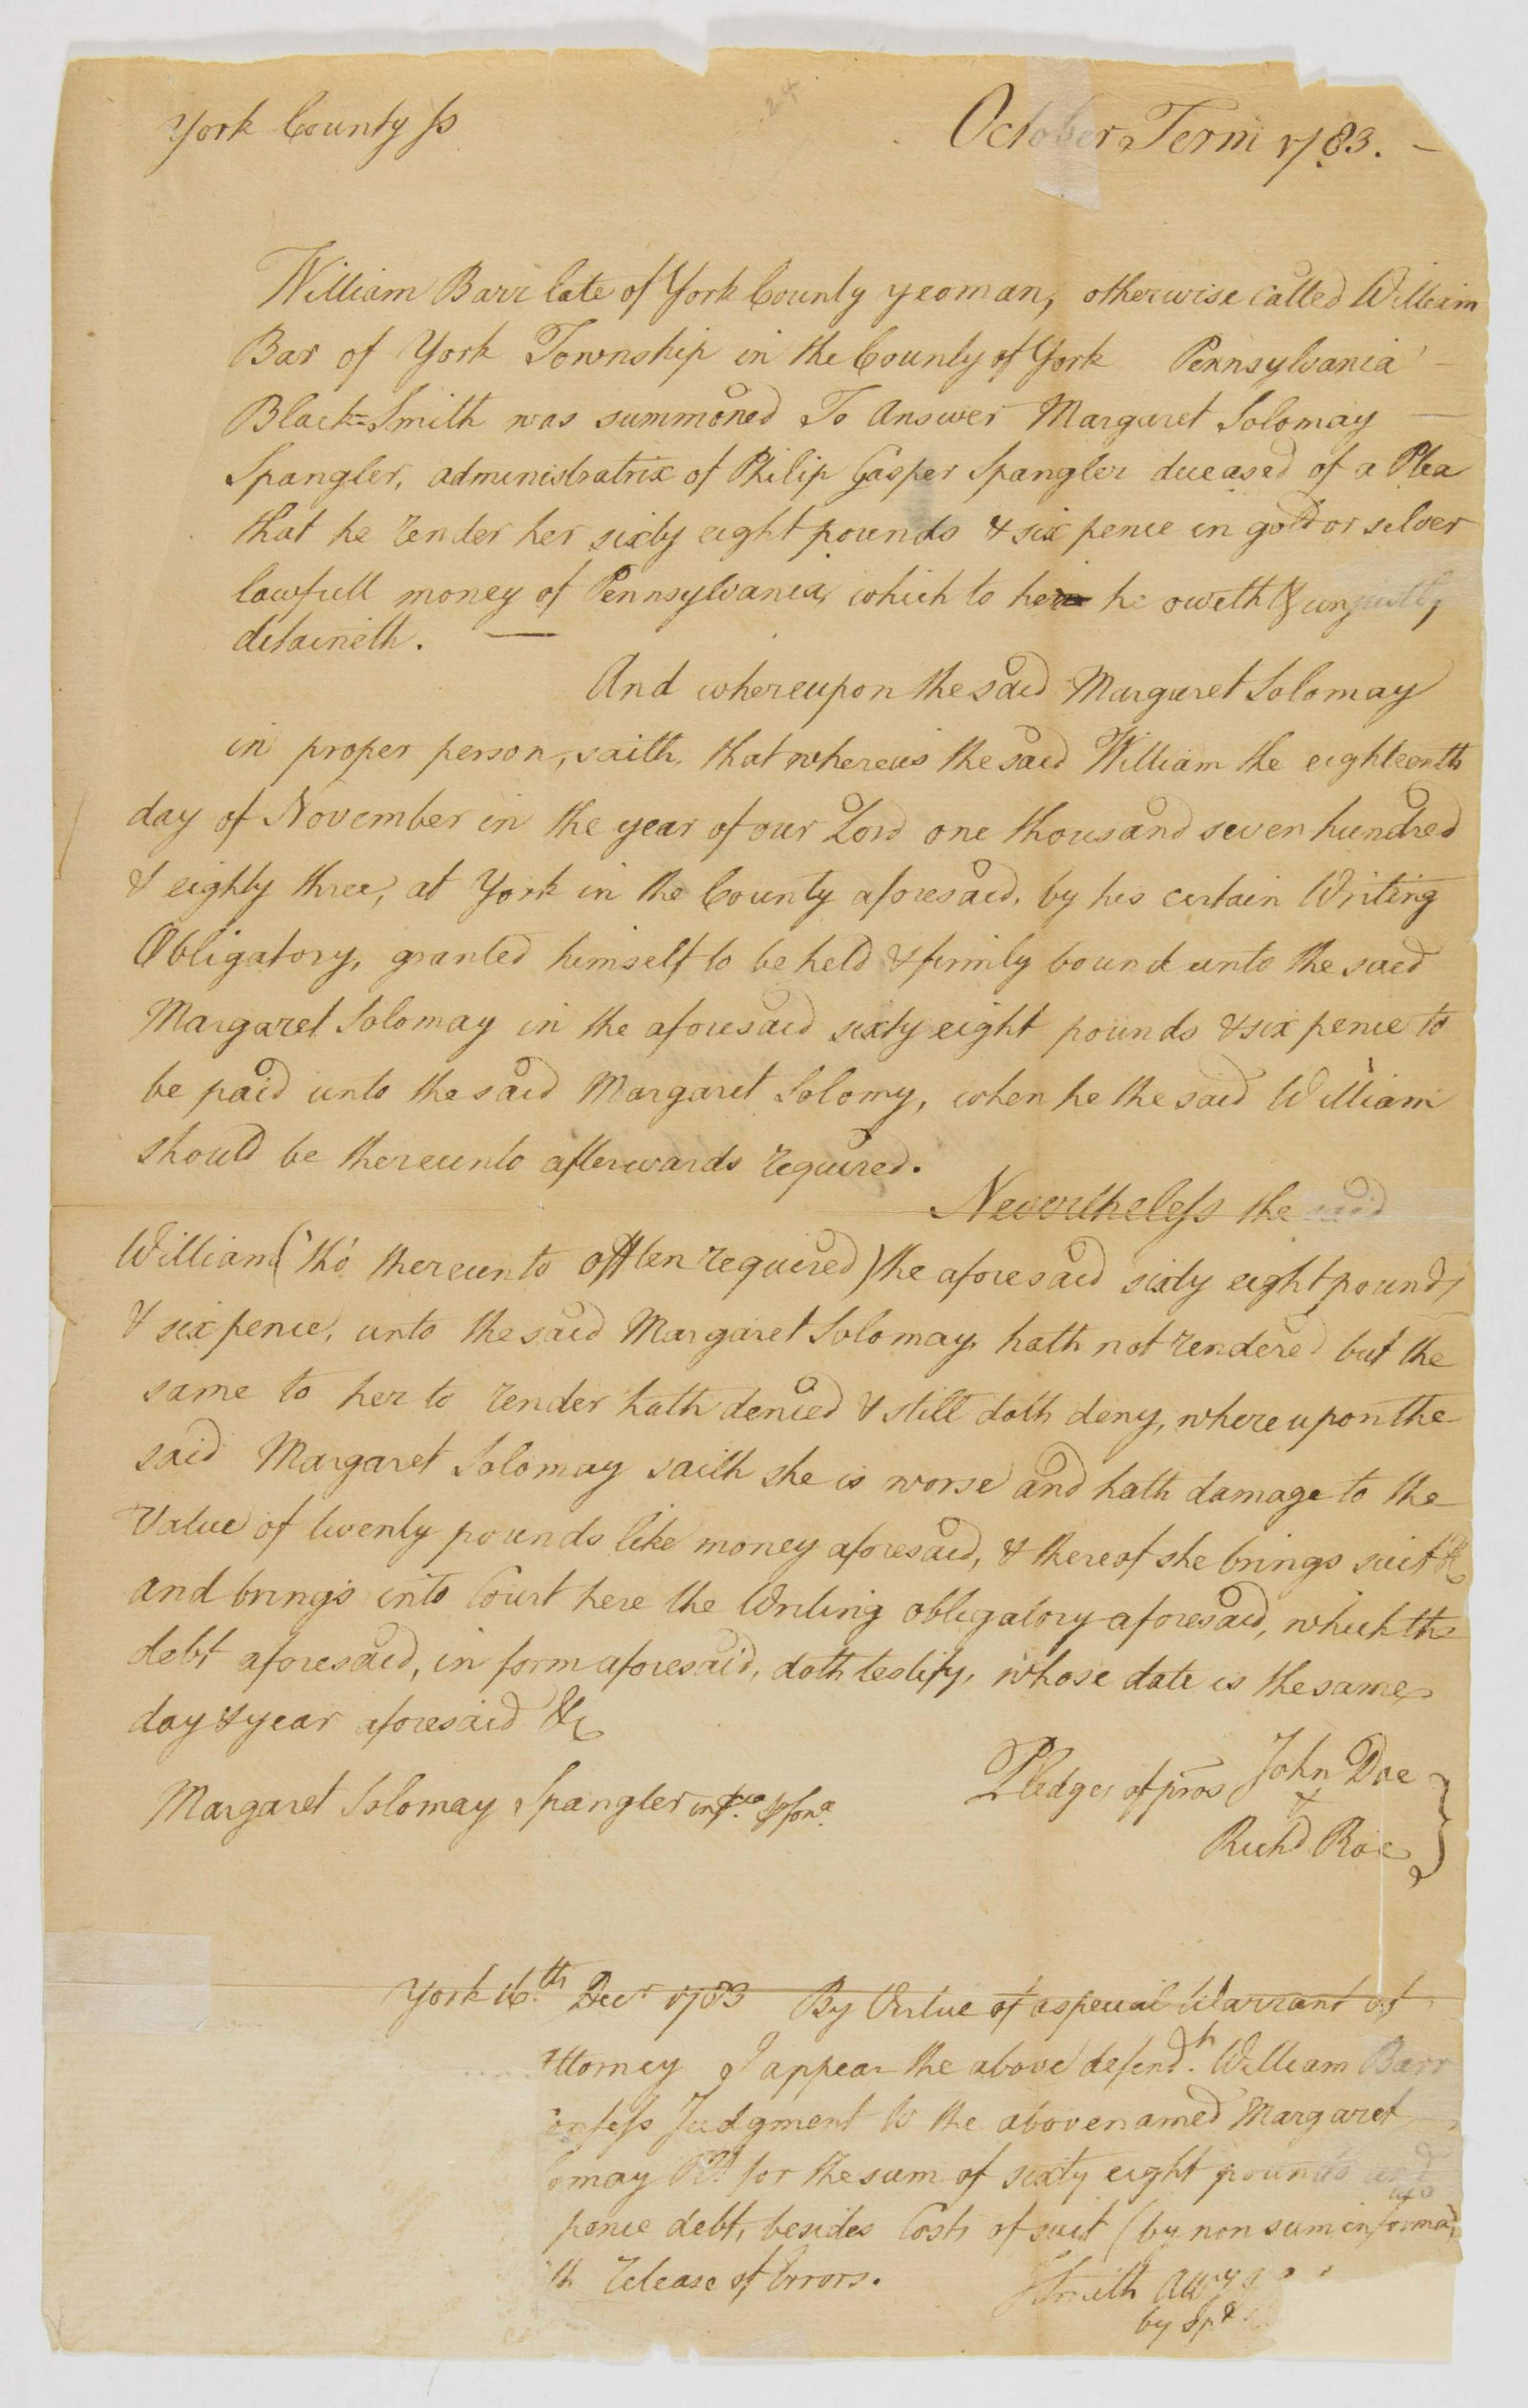 York County ss
October Term 1783. —
William Barr late of York County yeoman, otherwise called William
Bar of York Township in the County of York Pennsylvania
Black=Smith was summoned To Answer Margaret Solomay
Spangler, administratrix of Philip Casper Spangler deceased of a Plea
that he render her sixty eight pounds & six pence in gold or silver
lawfull money of Pennsylvania, which to her he oweth & unjustly
detaineth. —
And whereupon the said Margaret Solomay
in proper person, saith, that whereas the said William the eighteenth
day of November in the year of our Lord one thousand seven hundred
& eighty three, at York in the County aforesaid, by his certain Writing
Obligatory, granted himself to be held & firmly bound unto the said
Margaret Solomay in the aforesaid sixty eight pounds & six pence to
be paid unto the said Margaret Solomy, when he the said William
should be thereunto afterwards required.
Nevertheless the said
William (tho' thereunto often required) the aforesaid sixty eight pounds
& six pence, unto the said Margaret Solomay, hath not rendered but the
same to her to render hath denied & still doth deny, where upon the
said Margaret Solomay saith she is worse and hath damage to the
Value of twenty pounds like money aforesaid, & thereof she brings suit &c
and brings into Court here the Writing obligatory aforesaid, which the
debt aforesaid, in form aforesaid, doth testify, whose date is the same
day & year aforesaid &c
Margaret Solomay Spangler in
Pledges of pros John Doe
&
Richd Roe
York 16th Decr 1783 By Virtue of a special Warrant of
ttorney I appear the above defendt William Barr
onfess Judgment to the abovenamed Margaret
omay for the sum of sixty eight pounds and
pence debt, besides Costs of suit (by non sum informa
th release of Errors.
Smith Atty
by Spe